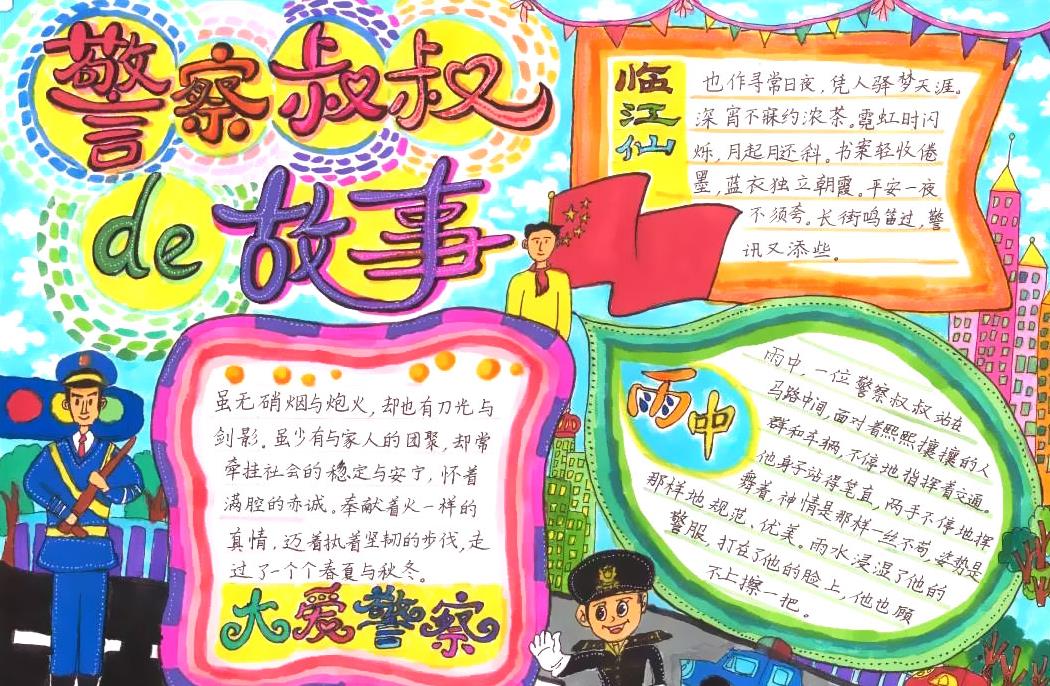 警察叔叔
de故事
临江仙
也作寻常日夜，凭人驿梦天涯。
深宵不寐约浓茶。霓虹时闪
烁，月起月还斜。书案轻收倦
墨，蓝衣独立朝霞。平安一夜
不须夸。长街鸣笛过，警
讯又添些。
虽无硝烟与炮火，却也有刀光与
剑影。虽少有与家人的团聚，却常
牵挂社会的稳定与安宁，怀着
满腔的赤诚。奉献着火一样的
真情，迈着执着坚韧的步伐，走
过了一个个春夏与秋冬。
大爱警察
雨中
雨中，一位警察叔叔站在
马路中间，面对着熙熙攘攘的人
群和车辆，不停地指挥着交通。
他身子站得笔直，两手不停地挥
舞着，神情是那样一丝不苟，姿势是
那样地规范、优美。雨水浸湿了他的
警服，打在了他的脸上，他也顾
不上擦一把。